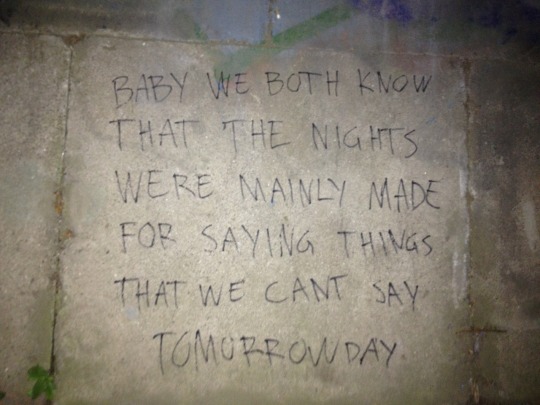 BABY WE BOTH KNOW
THAT THE NIGHTS
WERE MAINLY MADE
FOR SAYING THINGS
THAT WE CANT SAY
TOMORROWDAY